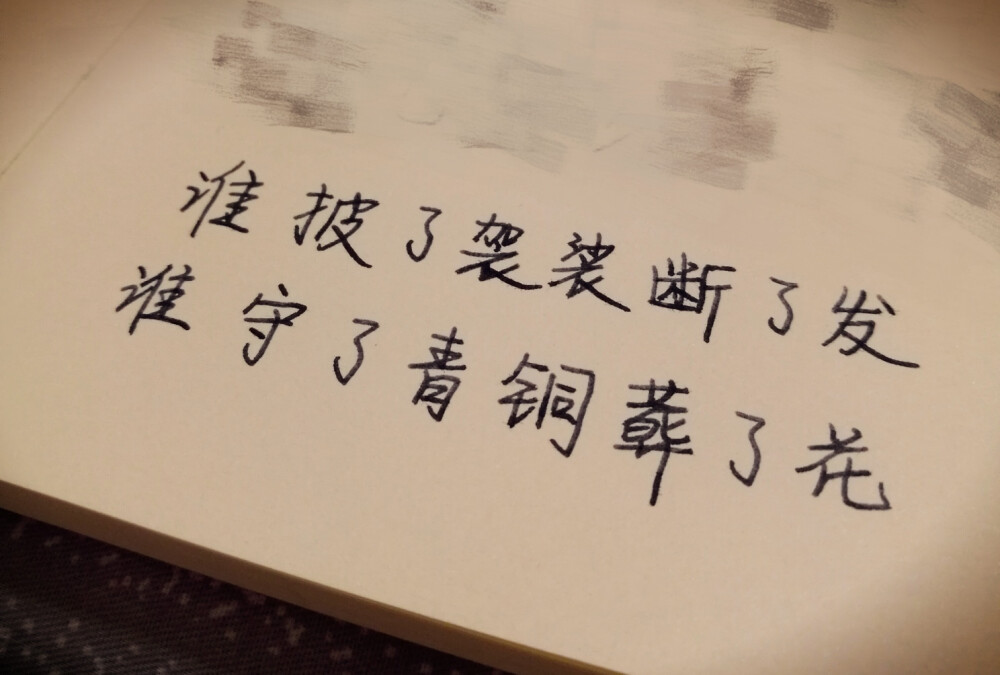 谁披了袈裟断了发
谁守了青铜蕣了花